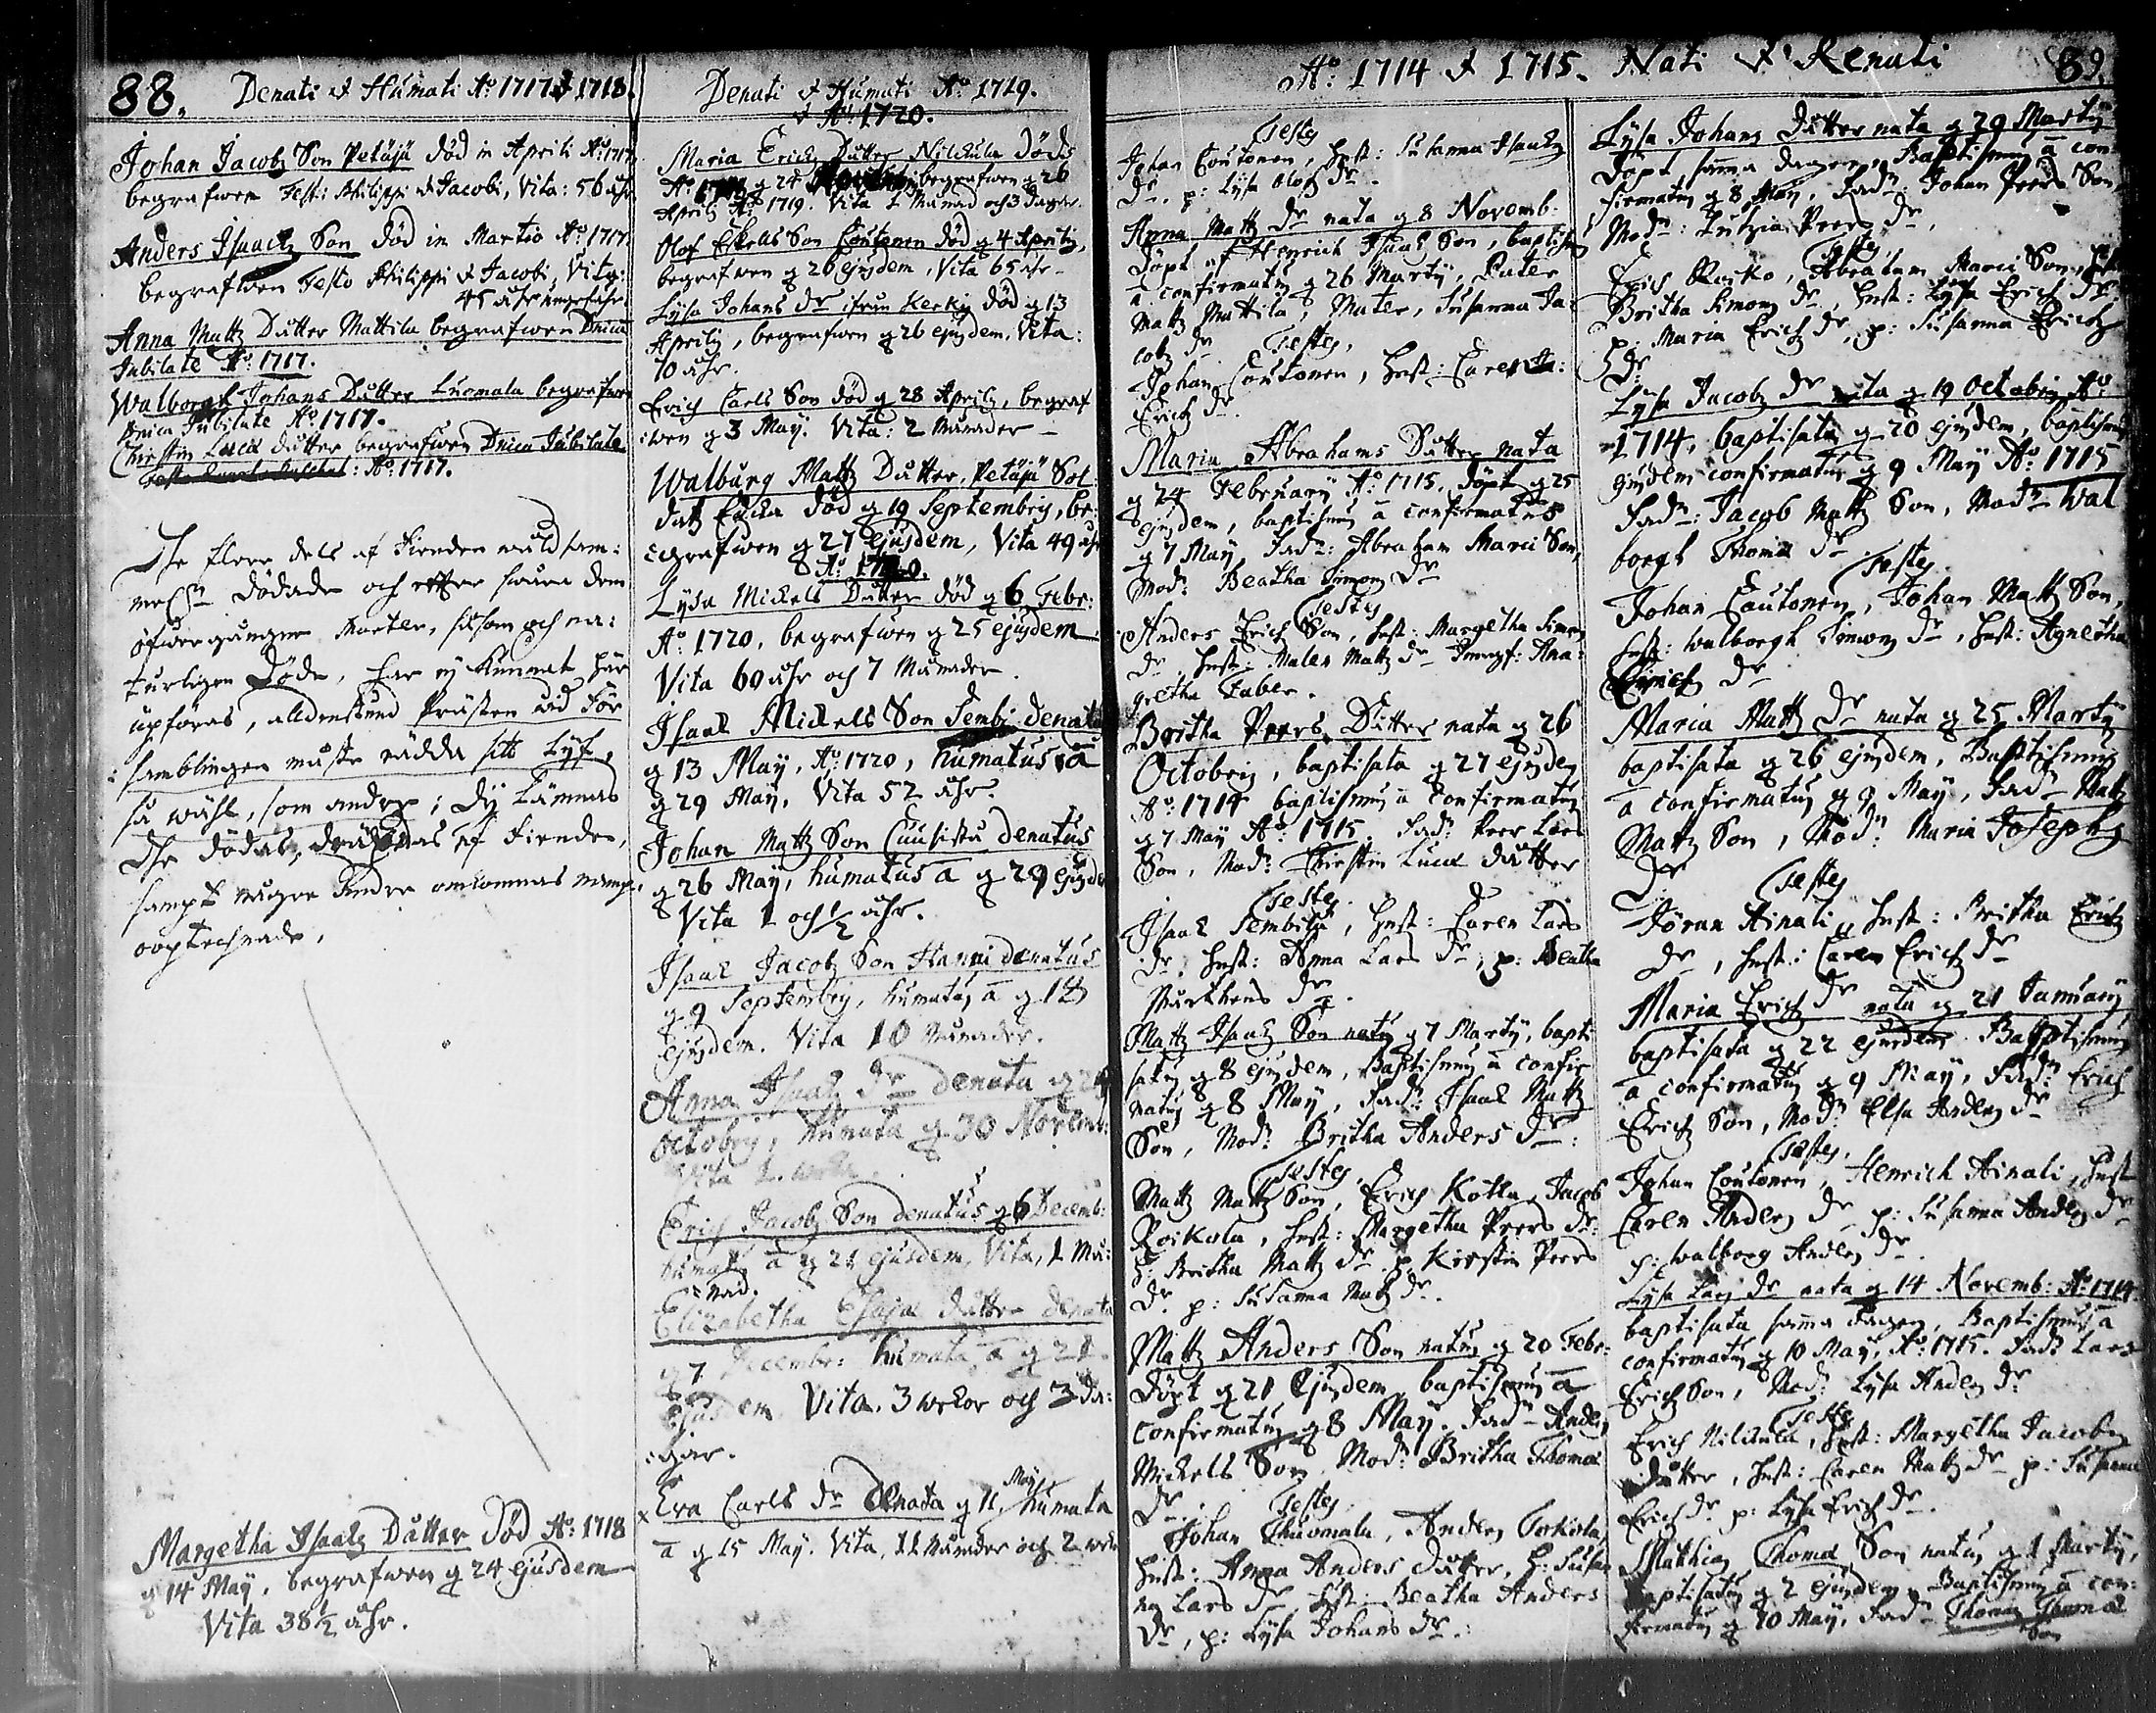 88. Denati & Humati Ao: 1717 & 1718.
Johan Jacobz Son Petäjä död in Aprili Ao: 1717
begrafwen Fest: Philippi & Jacobi, Vita: 56 åhr
Anders Isaacz Son död in Martio Ao: 1717.
begrafwen Festo Philippi & Jacobi, Vita:
45 åhr ungefähr
Anna Mattz Dutter Mattila begrafwen Dnica
Jubilate Ao: 1717.
Walborgh Johans Dutter Luomala begrafwen
Dnica Jubilate Ao: 1717.
Chirstin Lucæ dutter begrafwen Dnica Jubilate
: Ao: 1717.
The flere dels af Fienden
dödade och
öfwergångne Marter, såsom och na:
turligen Döde, har ej kunnat här
upföras, alldenstund Prästen wid För
:samblingen måste rädda sitt Lijf,
så wähl, som andre; Dy Lämnas
The dödas, af Fienden,
sampt någre Andre omkomnas nampn
oopteknade.
Margetha Isaacz Dutter Död Ao: 1718
g 14 May, begrafwen g 24 ejusdem
Vita 38½ åhr.
Denati & Humati Ao: 1719.
& Ao: 1720.
Maria Erichz Dutter Nickula Döde
Ao: g 24 begrafwen g 26
Aprilis Ao: 1719. Vita 1 Månad och 3 dagar.
Olof Eskells Son Coutonen död g 4 Aprilis,
begrafwen g 26 ejusdem, Vita 65 åhr
Lysa Johans dr ifrån Kerkis död g 13
Aprilis, begrafwen g 26 ejusdem. Vita:
70 åhr.
Erich Carls Son död g 28 Aprilis, begraf
:wen g 3 May. Vita: 2 Månader
Walburg Mattz Dutter, Petäjä Sol:
datz Encka död g 19 Septembris, be:
:grafwen g 27 ejusdem, Vita 49 åhr
Ao: 1720.
Lysa Mickels Dutter död g 6 Febr:
Ao: 1720, begrafwen g 25 ejusdem
Vita 60 åhr och 7 Månader.
Isaac Mickels Son Sembi denatus
g 13 May, Ao: 1720, humatus ä
g 29 May, Vita 52 åhr.
Johan Mattz Son Cuusistu Denatus
g 26 May, humatus ä g 29 ejusd
Vita 1 och ½ åhr.
Isaac Jacobz Son Hanni denatus
g 9 Septembris, humatus ä g 18
ejusdem. Vita 10 Månader.
Anna Isaacz Dr denata g 24
Octobris, humata g 30 Novemb:
Vita 1. weka.
Erich Jacobz Son denatus g 6 Decemb:
humatus ä g 21 ejusdem, Vita, 1 Må:
:nad.
Elizabetha Esajæ dutter denata
g 7 Decembr: humata ä g 21.
Ejusdem Vita. 3 wekor och 3 Da:
:gar.
x Eva Carls dr Denata g 11. May humata
ä g 15 May. Vita, 11 Månader och 2 wek
Ao: 1714 & 1715. Nati & Renati 89.
Testes
Johan Coutonen, Hust: Susanna Isaacz
Dr. p: Lysa Olofz dr.
Anna Mattz dr nata g 8 Novemb:
Döpt af Henrich Isaacz Son, baptismus
ä confirmatus g 26 Martij, Pater
Mattz Mattila, Mater, Susanna Ja:
cobz dr Testes,
Johan Coutonen, Hust: Caren
Erichz dr.
Maria Abrahams Dutter nata
g 24 Februarij Ao: 1715, döpt g 25
ejusdem, baptismus ä confirmatus
g 7 May, Fadr: Abraham Marci Son,
Modr: Beatha Simons Dr
Testes
Anders Erichz Son, Hust: Margetha Simons
dr, Hust: Malen Mattz dr Jungf: Ana:
gretha Faber.
Britha Peers Dutter nata g 26
Octobris, baptisata g 27 ejusdem
Ao: 1714 baptismus ä confirmatus
g 7 May Ao: 1715. Fadr: Peer Lars
Son, Modr: Chirstin Lucæ dutter
Testes.
Isaac Sembilä, Hust: Caren Lars
dr. Hust: Anna Lars dr, p: Beatha
Markens dr.
Mattz Isaacz Son natus g 7 Martij, bapti
satus g 8 ejusdem, Baptismus ä confir
matus g 8 May, Fadr: Isaac Mattz
Son, Modr: Britha Anders dr:
Testes,
Mattz Mattz Son, Erich Kotka, Jacob
Roikola, Hust: Margetha Peers dr:
H: Britha Mattz dr. p: Kirstin Peers
Dr. p: Susanna Mattz dr.
Mattz Anders Son natus g 20 Febr:
Döpt g 21 Ejusdem, baptismus ä
confirmatus g 8 May. Fadr Anders
Mickels Son, Modr: Britha Thomæ
Dr. Testes.
Johan Thuomala, Anders Torkola,
Hust: Anna Anders dutter, H: Susan
na Lars dr, Hust: Beatha Anders
Dr, p: Lysa Johans dr.
Lysa Johans Dutter nata g 29 Martij
Döpt samma dagen, Baptismus ä con:
firmatus g 8 May, Fadr: Johan Peers Son,
Modr: Peers dr.
Testes,
Erich Raiko, Abraham Marci Son, Hust
Britha Simons dr, Hust: Lysa Erichz dr:
p: Maria Erichz dr, p: Susanna Erichz
Dr.
Lysa Jacobz dr nata g 19 Octobris Ao:
1714, baptisata g 20 ejusdem, baptismus
ejusdem confirmatus g 9 May Ao: 1715
Fadr: Jacob Mattz Son, Modr Wal
borgh Thomæ dr
Testes.
Johan Coutonen, Johan Mattz Son,
Hust: Walborgh Simons dr, Hust: Agnetha
dr
Maria Mattz dr nata g 25 Martij
baptisata g 26 ejusdem, Baptismus
ä confirmatus g 9 May, Fadr Mattz
Mattz Son, Modr: Maria Josephz
Dr
Testes
Jöran Ainali, Hust: Britha Erichz
dr, Hust: Caren Erichz dr
Maria Erichz dr nata g 21 Januarij
baptisata g 22 ejusdem Baptismus
ä confirmatus g 9 May, Fadr: Erich
Erichz Son, Modr: Elsa Anders dr
Testes.
Johan Coutonen, Henrich Ainali, Hust
Caren Anders dr p: Susanna Anders dr
p: Walborg Anders dr.
Lysa Lars dr nata g 14 Novemb: Ao: 1714
baptisata samma dagen, Baptismus ä
confirmatus g 10 May, Ao: 1715. Fadr Lars
Erichz Son, Modr: Lysa Anders dr
Testes
Erich Nickula, Hust: Margetha Jacobz
dutter, Hust: Caren Mattz dr p: Susanna
Erichz dr p: Lysa Erichz dr.
Mathias Thomæ Son natus g 1 Martij,
baptisatus g 2 ejusdem, Baptismus ä con:
firmatus g 10 May. Fadr Thomas Thomæ
Son